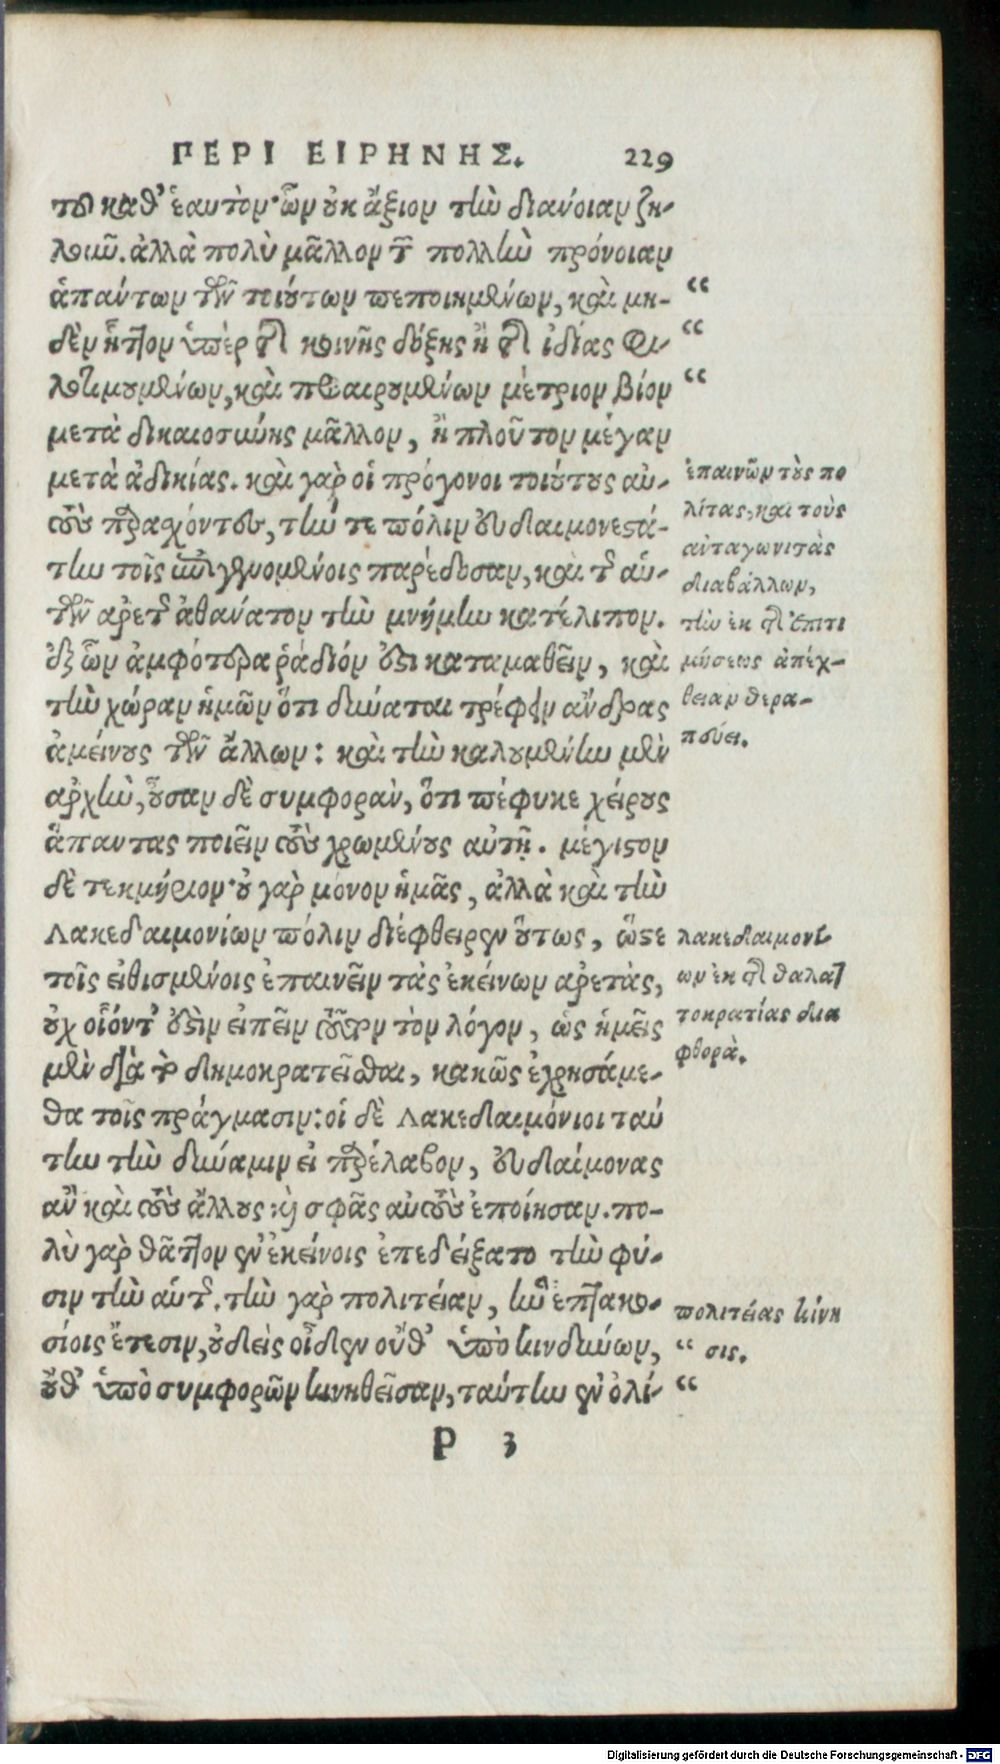 ΠΕΡΙ ΕΙΡΗΝΗΣ. 229
το καθ' ἑαυτὸν· ὧν οὐκ ἄξιον τὴν διάνοιαν ζη-
λοῦν. ἀλλὰ πολὺ μᾶλλον τῶν πολλὴν πρόνοιαν
ἁπάντων τῶν τοιούτων πεποιημένων, καὶ μη-
δὲν ἧττον ὑπὲρ τῆς κοινῆς δόξης ἢ τῆς ἰδίας φι-
λοτιμουμένων, καὶ προαιρουμένων μέτριον βίον
μετὰ δικαιοσύνης μᾶλλον, ἢ πλοῦτον μέγαν
μετὰ ἀδικίας. καὶ γὰρ οἱ πρόγονοι τοιούτους αὐ-
τοὺς παρασχόντες, τήν τε πόλιν εὐδαιμονεστά-
την τοῖς ἐπιγενομένοις παρέδοσαν, καὶ τῆς αὑ-
τῶν ἀρετῆς ἀθάνατον τὴν μνήμην κατέλιπον.
ἐξ ὧν ἀμφότερα ῥᾴδιόν ἐστι καταμαθεῖν, καὶ
τὴν χώραν ἡμῶν ὅτι δύναται τρέφειν ἄνδρας
ἀμείνους τῶν ἄλλων: καὶ τὴν καλουμένην μὲν
ἀρχὴν, οὖσαν δὲ συμφορὰν, ὅτι πέφυκε χείρους
ἅπαντας ποιεῖν τοὺς χρωμένους αὐτῇ. μέγιστον
δὲ τεκμήριον· οὐ γὰρ μόνον ἡμᾶς, ἀλλὰ καὶ τὴν
Λακεδαιμονίων πόλιν διέφθειρεν οὕτως, ὥστε
τοῖς εἰθισμένοις ἐπαινεῖν τὰς ἐκείνων ἀρετὰς,
οὐχ οἷόντ' ἐστὶν εἰπεῖν τοῦτον τὸν λόγον, ὡς ἡμεῖς
μὲν διὰ τὸ δημοκρατεῖσθαι, κακῶς ἐχρησάμε-
θα τοῖς πράγμασιν: οἱ δὲ Λακεδαιμόνιοι ταύ
την τὴν δύναμιν εἰ παρέλαβον, εὐδαίμονας
ἂν καὶ τοὺς ἄλλους καὶ σφᾶς αὐτοὺς ἐποίησαν. πο-
λὺ γὰρ θᾶττον ἐν ἐκείνοις ἐπεδείξατο τὴν φύ-
σιν τὴν αὑτῆς. τὴν γὰρ πολιτείαν, ἣν ἐπτακο-
σίοις ἔτεσιν, οὐδεὶς οἶδεν οὔθ' ὑπὸ κινδύνων,
οὔθ' ὑπὸ συμφορῶν κινηθεῖσαν, ταύτην ἐν ὀλί-
P 3
“
“
“
ἐπαινῶν τοὺς πο
λίτας, καὶ τοὺς
ἀνταγωνιτὰς
διαβάλλων,
τὴν ἐκ τῆς ἐπιτι
μήσεως ἀπέχ-
θειαν θερα-
πεύει.
λακεδαιμονί
ων ἐκ τῆς θαλατ
τοκρατίας δια
φθορὰ.
πολιτείας κίνη
“ σις.
“
Digitalisierung gefördert durch die Deutsche Forschungsgemeinschaft - DFG